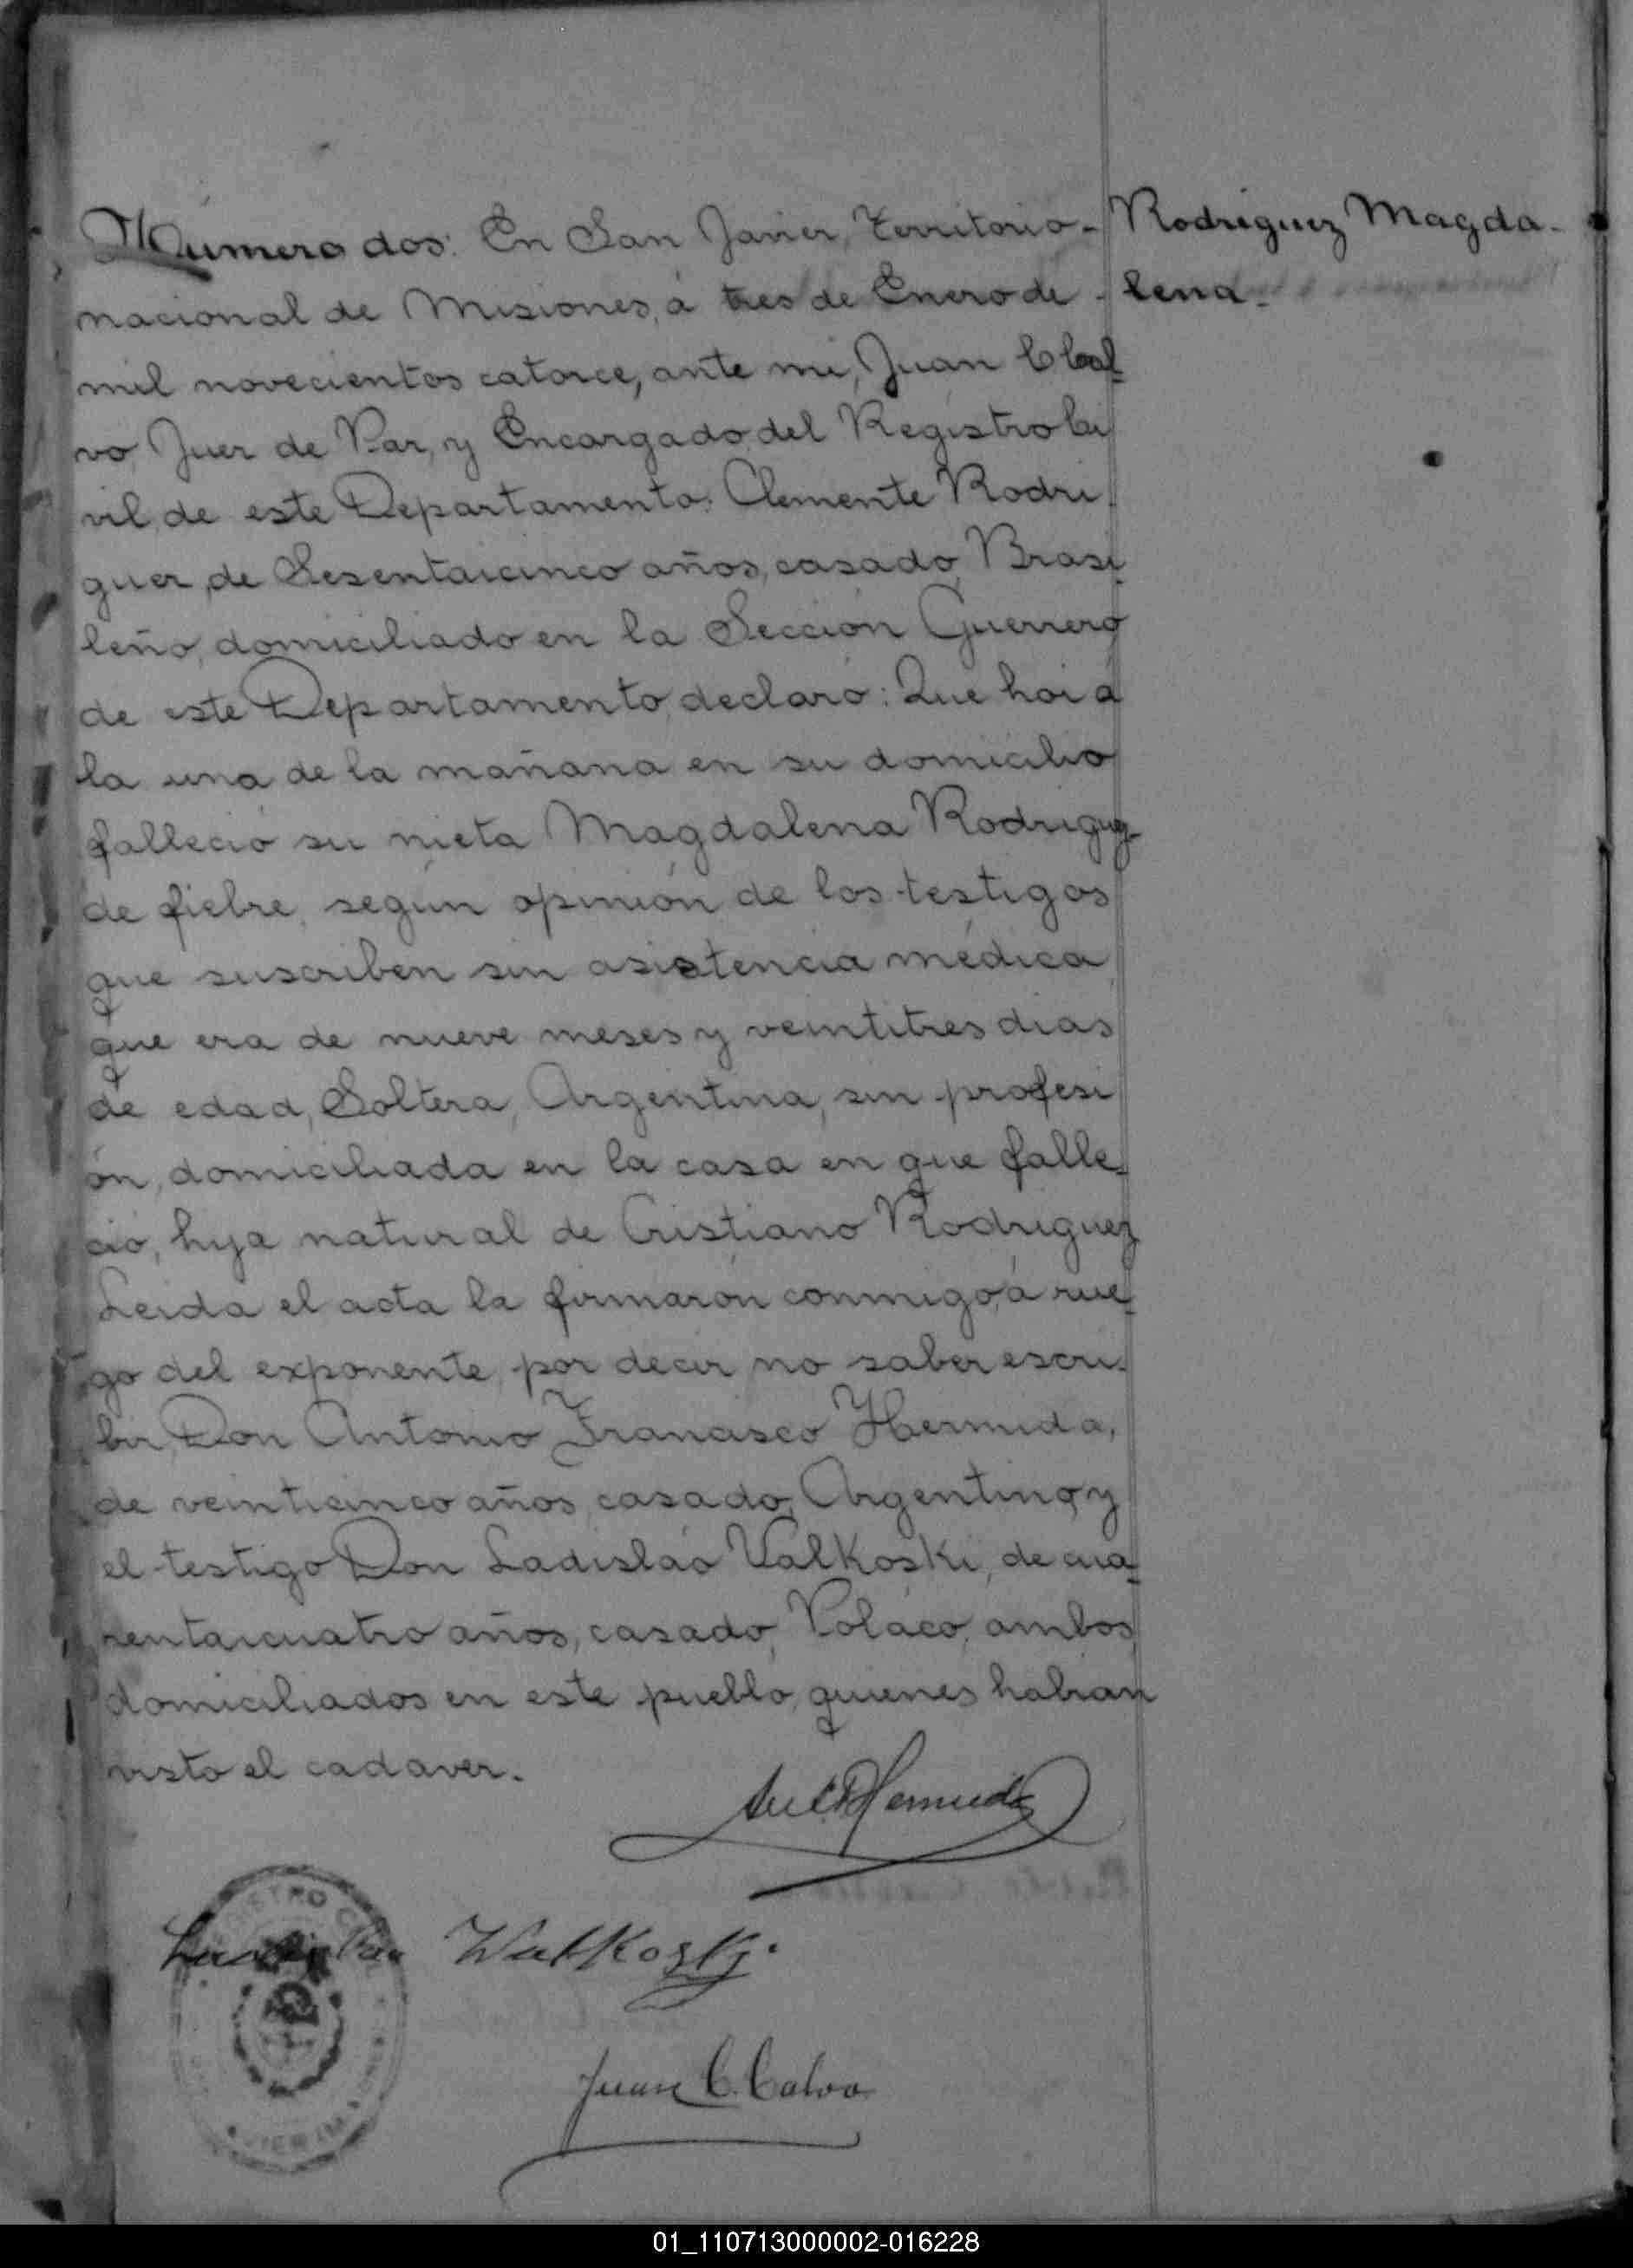 Número dos: En San Javier, Territorio-
nacional de Misiones, á tres de Enero de -
mil novecientos catorce, ante mi, Juan C Cal-
vo Juez de Paz, y Encargado del Registro Ci
vil, de este Departamento: Clemente Rodri-
guez, de Sesentaicinco años, casado, Brasi-
leño, domiciliado en la Sección Guerrero
de este Departamento, declaró: Que hoi á
la una de la mañana en su domicilio
falleció su nieta Magdalena Rodriguez
de fiebre, según opinión de los testigos
que suscriben sin asistencia médica,
que era de nueve meses y veintitres dias
de edad, Soltera, Argentina, sin profesi
ón, domiciliada en la casa en que falle-
ció, hija natural de Cristiano Rodriguez
Leida el acta la firmarón conmigo, á rue-
go del exponente, por decir no saber escri-
bir, Don Antonio Francisco Hermida,
de veinticinco años, casado, Argentino, y
el testigo Don Ladisláo Valkoski, de cua-
rentaicuatro años, casado, Poláco, ambos
domiciliados en este pueblo, quienes habian
visto el cadaver.
Rodriguez Magda-
lena.
Hermida
Ladislau Walkosky.
REGISTRO CIVIL
Juan C. Calvo
01_110713000002-016228